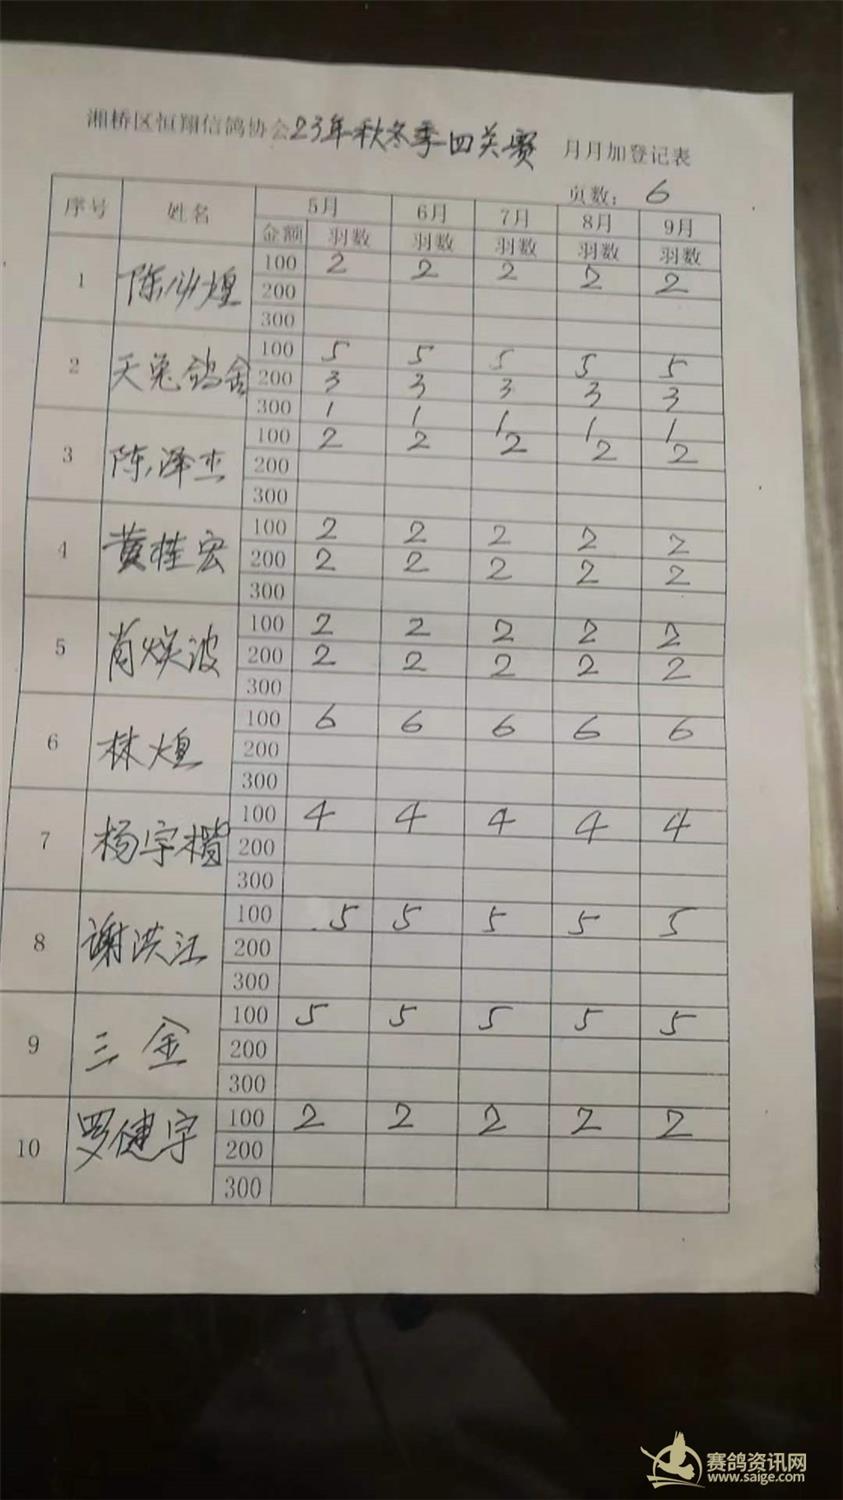 湘桥区恒翔信鸽协会23年秋冬季四关赛 月月加登记表
页数：6
序号 姓名 5月 6月 7月 8月 9月
金额 羽数 羽数 羽数 羽数 羽数
1 陈 煌 100 2 2 2 2 2
200
300
2 天兔鸽舍 100 5 5 5 5 5
200 3 3 3 3 3
300 1 1 1 1 1
3 陈泽杰 100 2 2 2 2 2
200
300
4 黄桂宏 100 2 2 2 2 2
200 2 2 2 2 2
300
5 肖焕波 100 2 2 2 2 2
200 2 2 2 2 2
300
6 林煌 100 6 6 6 6 6
200
300
7 杨宇楷 100 4 4 4 4 4
200
300
8 谢洪江 100 5 5 5 5 5
200
300
9 三金 100 5 5 5 5 5
200
300
10 罗健宇 100 2 2 2 2 2
200
300
赛鸽资讯网
www.saige.com